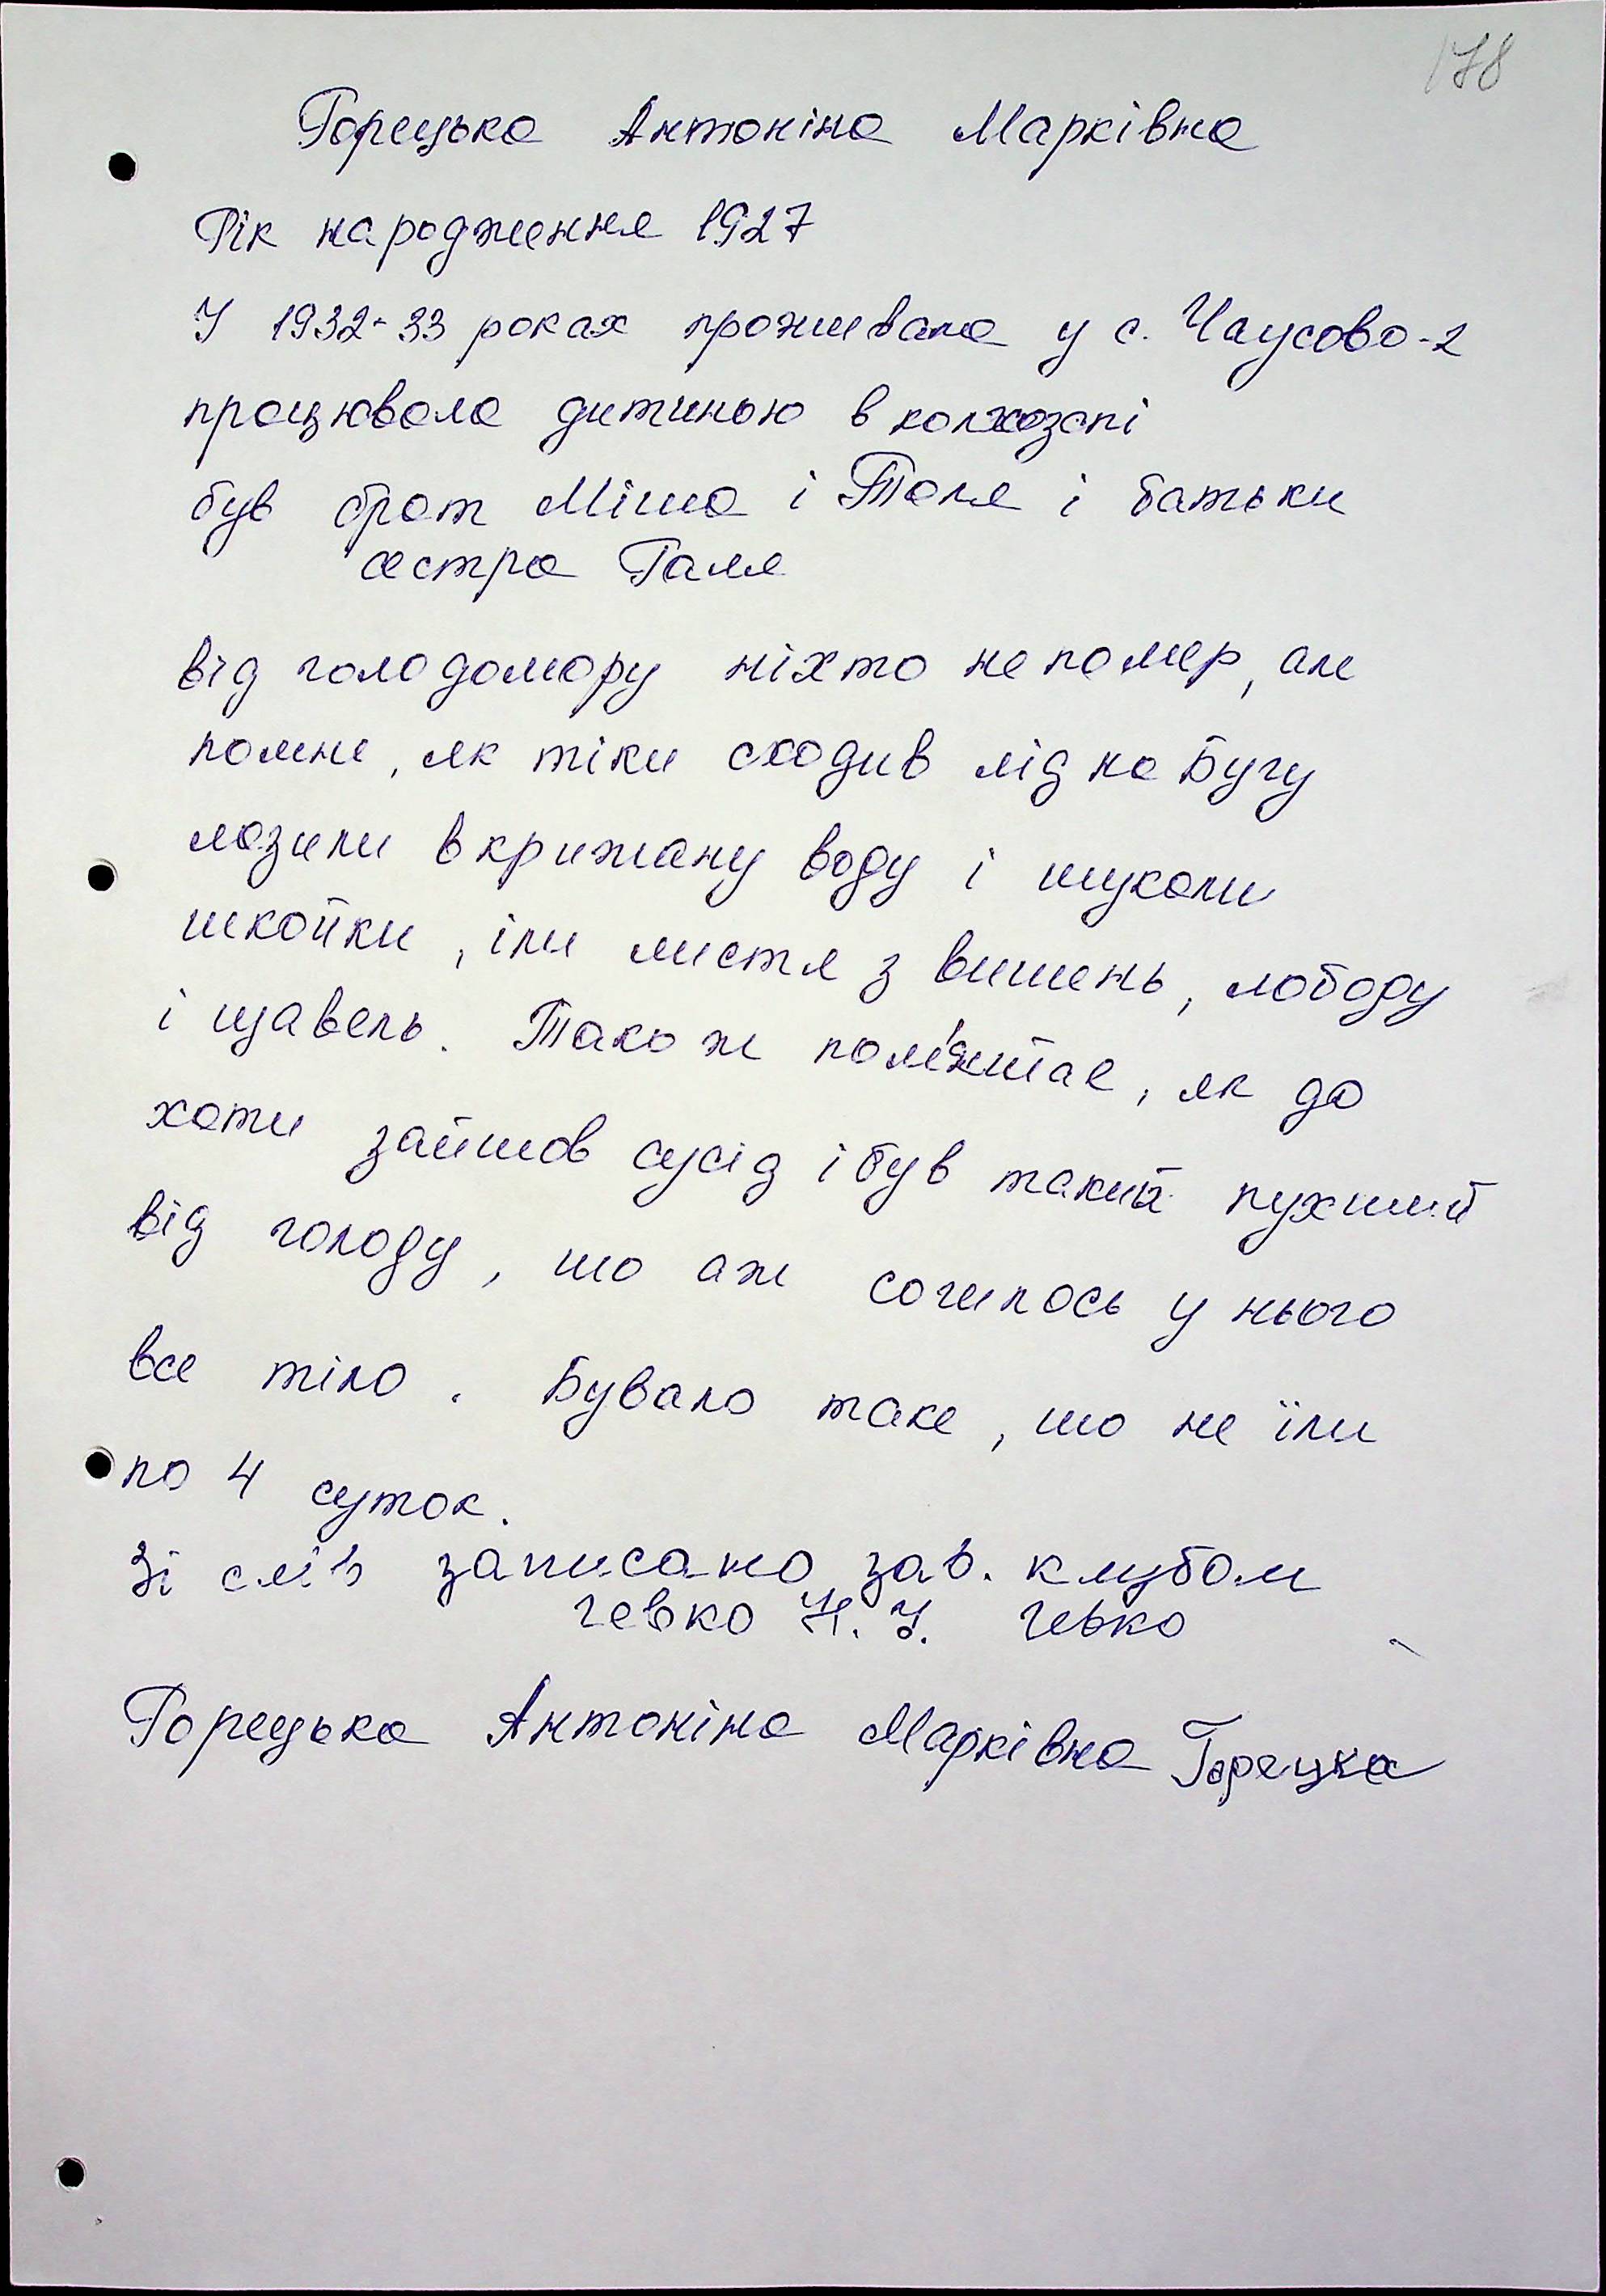 178
Горецька Антоніна Марківна
Рік народження 1927
У 1932-33 роках проживала у с. Чаусово-2
працювала дитиною в колхозапі
був брат Міша і Толя і батьки
сестра Галя
від голодомору ніхто не помер, але
помне, як тіки сходив лід на Бугу
лазили в крижану воду і шукали
шкойки, іли листя з вишень, лободу
і щавель. Також пам'ятає, як до
хати зайшов сусід і був такий пухший
від голоду, шо аж сочилось у нього
все тіло. Бувало таке, шо не їли
по 4 суток.
Зі слів записано зав. клубом
Гевко Н. У. Гевко
Горецька Антоніна Марківна Горецка